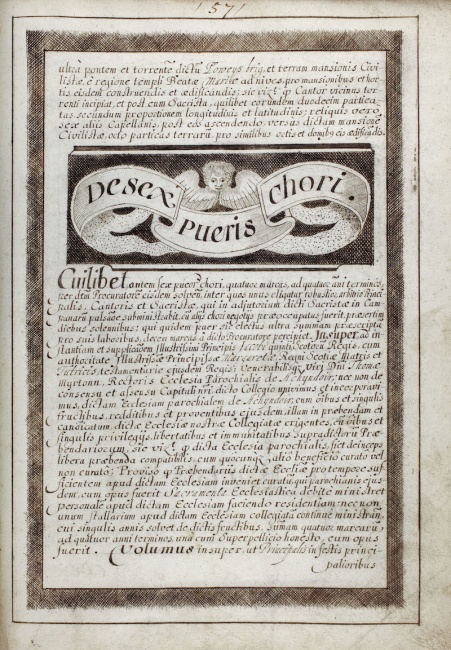 157
ultra pontem et torrentē dictū Poweys brig, et terram mansionis Civi-
listæ, e regione templi Beatæ Mariæ ad nives, pro mansionibus et hor-
tis eisdem construendis et ædificandis; sic vizt qp Cantor vicinus tor-
renti incipiat, et post eum Sacrista, quilibet eorundem duodecim partica-
tas secundum proportionem longitudinis et latitudinis; reliquis vero
sex aliis Capellanis, post eos ascendendo versus dictam mansionē
Civilistæ, octo particas terrarū, pro similibus
De sex pueris chori.
Cuilibet autem sex pueror chori, quatuor marcas, ad quatuor ani terminos,
per dtm Procuratorē eisdem solven. inter quos unus eligatur robustior, arbitrio Princi-
palis, Cantoris et Sacristæ, qui in adjutorium dicti Sacristæ in Cam-
panarū pulsu subministrabit, cū aliis chori negotiis præoccupatus fuerit, præsertim
diebus solemnibus; qui quidem puer sic electus ultra summam præscripta
pro suis laboribus, decem marcas a dicto Procuratore percipiet. Insuper, ad in-
stantiam et supplicationem Illustrissimi Principis Jacobi quinti Scotorū Regis, cum
authoritate Illustrissæ Principissæ Margaretæ Regni Scotiæ Matris et
Tutricis testamentariæ ejusdem Regis; Venerabilisq Viri Dni Thomæ
Myrtonn, Rectoris Ecclesiæ Parochialis de Achyndoir, nec non de
consensu et assensu Capituli nri, dicto Collegio univimus et incorporavi-
mus, dictam Ecclesiam parochialem de Achyndoir, cum oībus et singulis
fructibus, redditibus et proventibus ejusdem, illam in præbendam et
canonicatum, dictæ Ecclesiæ nostræ Collegiatæ erigentes, cū oībus et
singulis privilegiis, libertatibus et immunitatibus supradictorū Præ-
bendariorum, sic vizt qp dicta Ecclesia parochialis, fiet deinceps
libera præbenda compatibilis, cum quocunq alio beneficio curato vel
non curato: Proviso qp Præbendarius dictæ Eccliæ pro tempore suf-
ficientem apud dictam Ecclesiam inveniet curatū, qui parochianis ejus-
dem, cum opus fuerit Sacramenta Ecclesiastica debitè ministret
personalē apud dictam Ecclesiam faciendo residentiam: necnon
unum stallarium apud dictam Ecclesiam collegiatā continuè ministran,
cui singulis annis solvet de dictis fructibus, summam quatuor marcarū,
ad quatuor anni terminos, una cum Superpellicio honesto, cum opus
fuerit. Volumus insuper, ut Principalis in festis princi-
palioribus